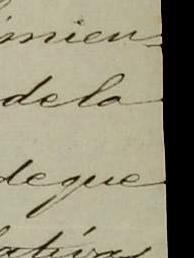 imien-
de la
de que
lativas